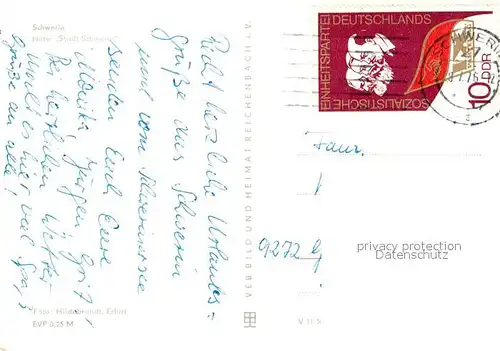 Schwerin
Hotel „Stadt Schwerin"
Recht herzliche Urlaubs=
grüße aus Schwerin
und vom Schweriner See
senden Euch Eure
Monika, Jürgen, Grit,
Bei herrlichem Wetter
macht es hier viel Spaß,
Grüße an alle!
Foto: Hildebrandt, Erfurt
EVP 0,25 M
VEB BILD UND HEIMAT REICHENBACH i. V.
V 11 S
SOZIALISTISCHE
EINHEITSPARTEI DEUTSCHLANDS
10 DDR
SCHWERIN
Fam.
9272 G
privacy protection
Datenschutz